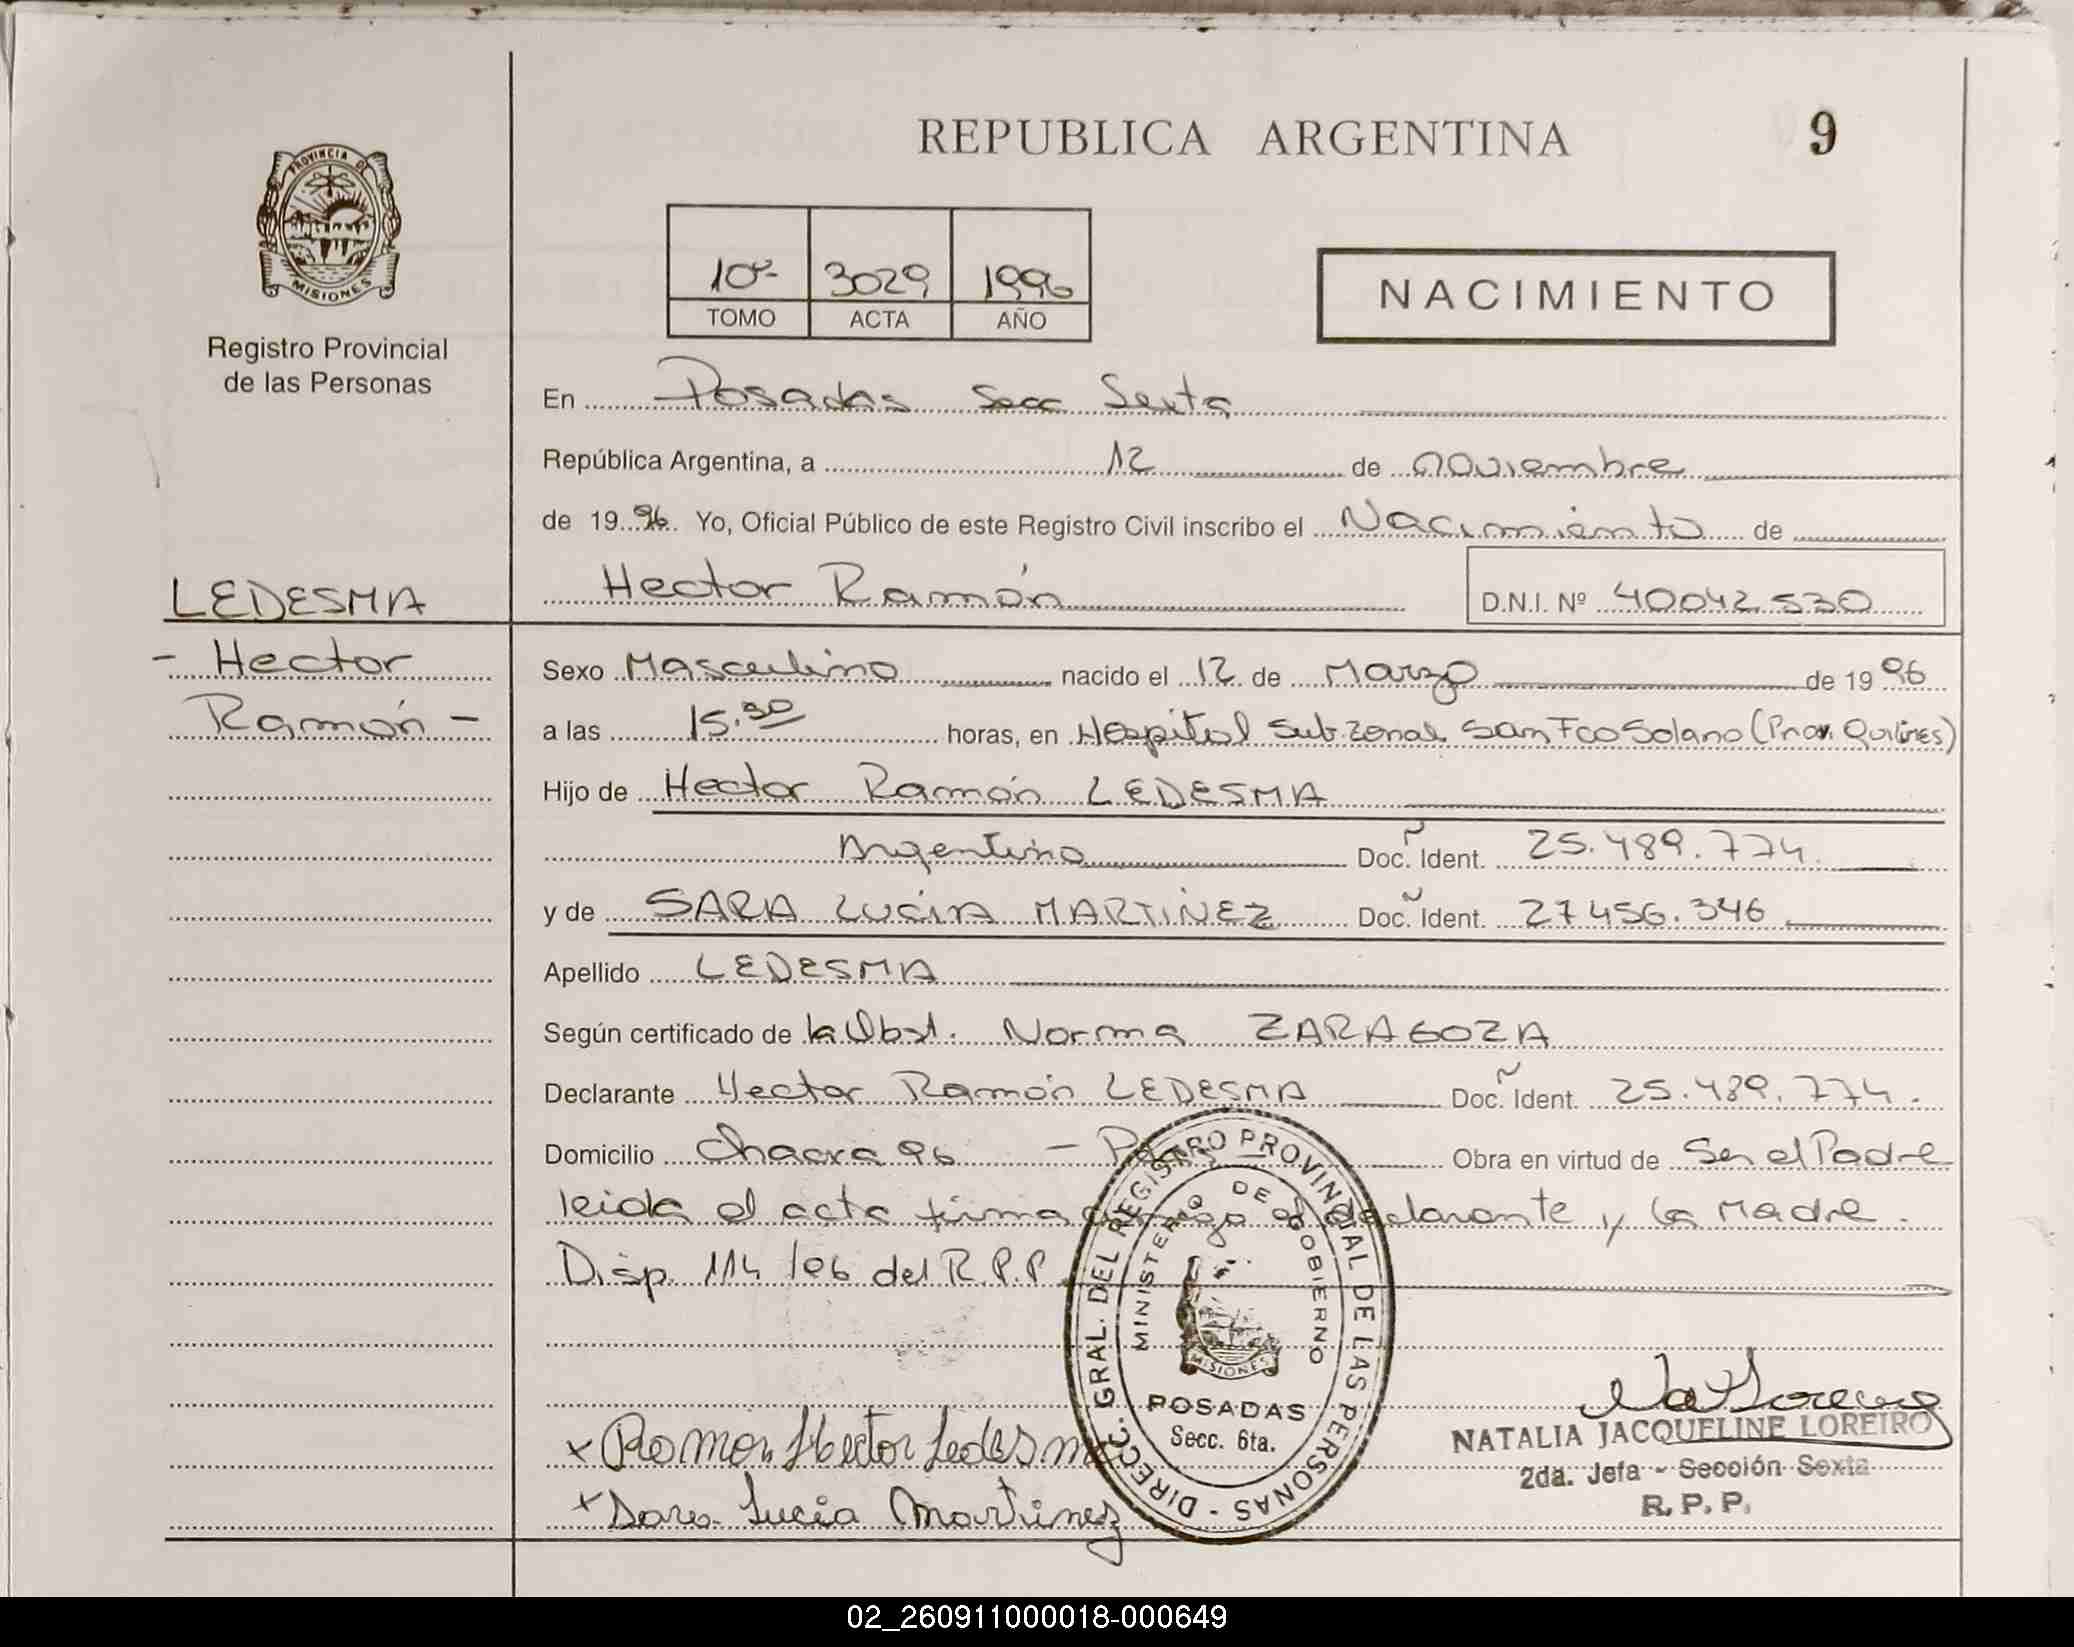 REPUBLICA ARGENTINA
9
PROVINCIA DE
MISIONES
Registro Provincial
de las Personas
10º- 3029 1996
TOMO ACTA AÑO
NACIMIENTO
En Posadas Secc Sexta
República Argentina, a 12 de noviembre
de 1996 Yo, Oficial Público de este Registro Civil inscribo el Nacimiento de
Hector Ramón
D.N.I. Nº 40042530
LEDESMA
- Hector
Ramón -
Sexo Masculino nacido el 12 de Marzo de 1996
a las 15.30 horas, en Hospital Sub.zonal San Fco Solano (Prov. Quilmes)
Hijo de Hector Ramón LEDESMA
Argentino Doc. Ident. 25.489.774
y de SARA LUCIA MARTINEZ Doc. Ident. 27456.346
Apellido LEDESMA
Según certificado de la Obst. Norma ZARAGOZA
Declarante Hector Ramón LEDESMA Doc. Ident. 25.489.774.
Domicilio Chacra 96 - Obra en virtud de Ser el Padre
leida el acta firma conmigo el declarante y la Madre.
Disp. 114/96 del R.P.P
DIREC. GRAL. DEL REGISTRO PROVINCIAL DE LAS PERSONAS -
MINISTERIO DE GOBIERNO
MISIONES
POSADAS
Secc. 6ta.
x Ramon Hector Ledesma
x Sara Lucia Martinez
NATALIA JACQUELINE LOREIRO
2da. Jefa - Sección Sexta
R.P.P.
02_260911000018-000649